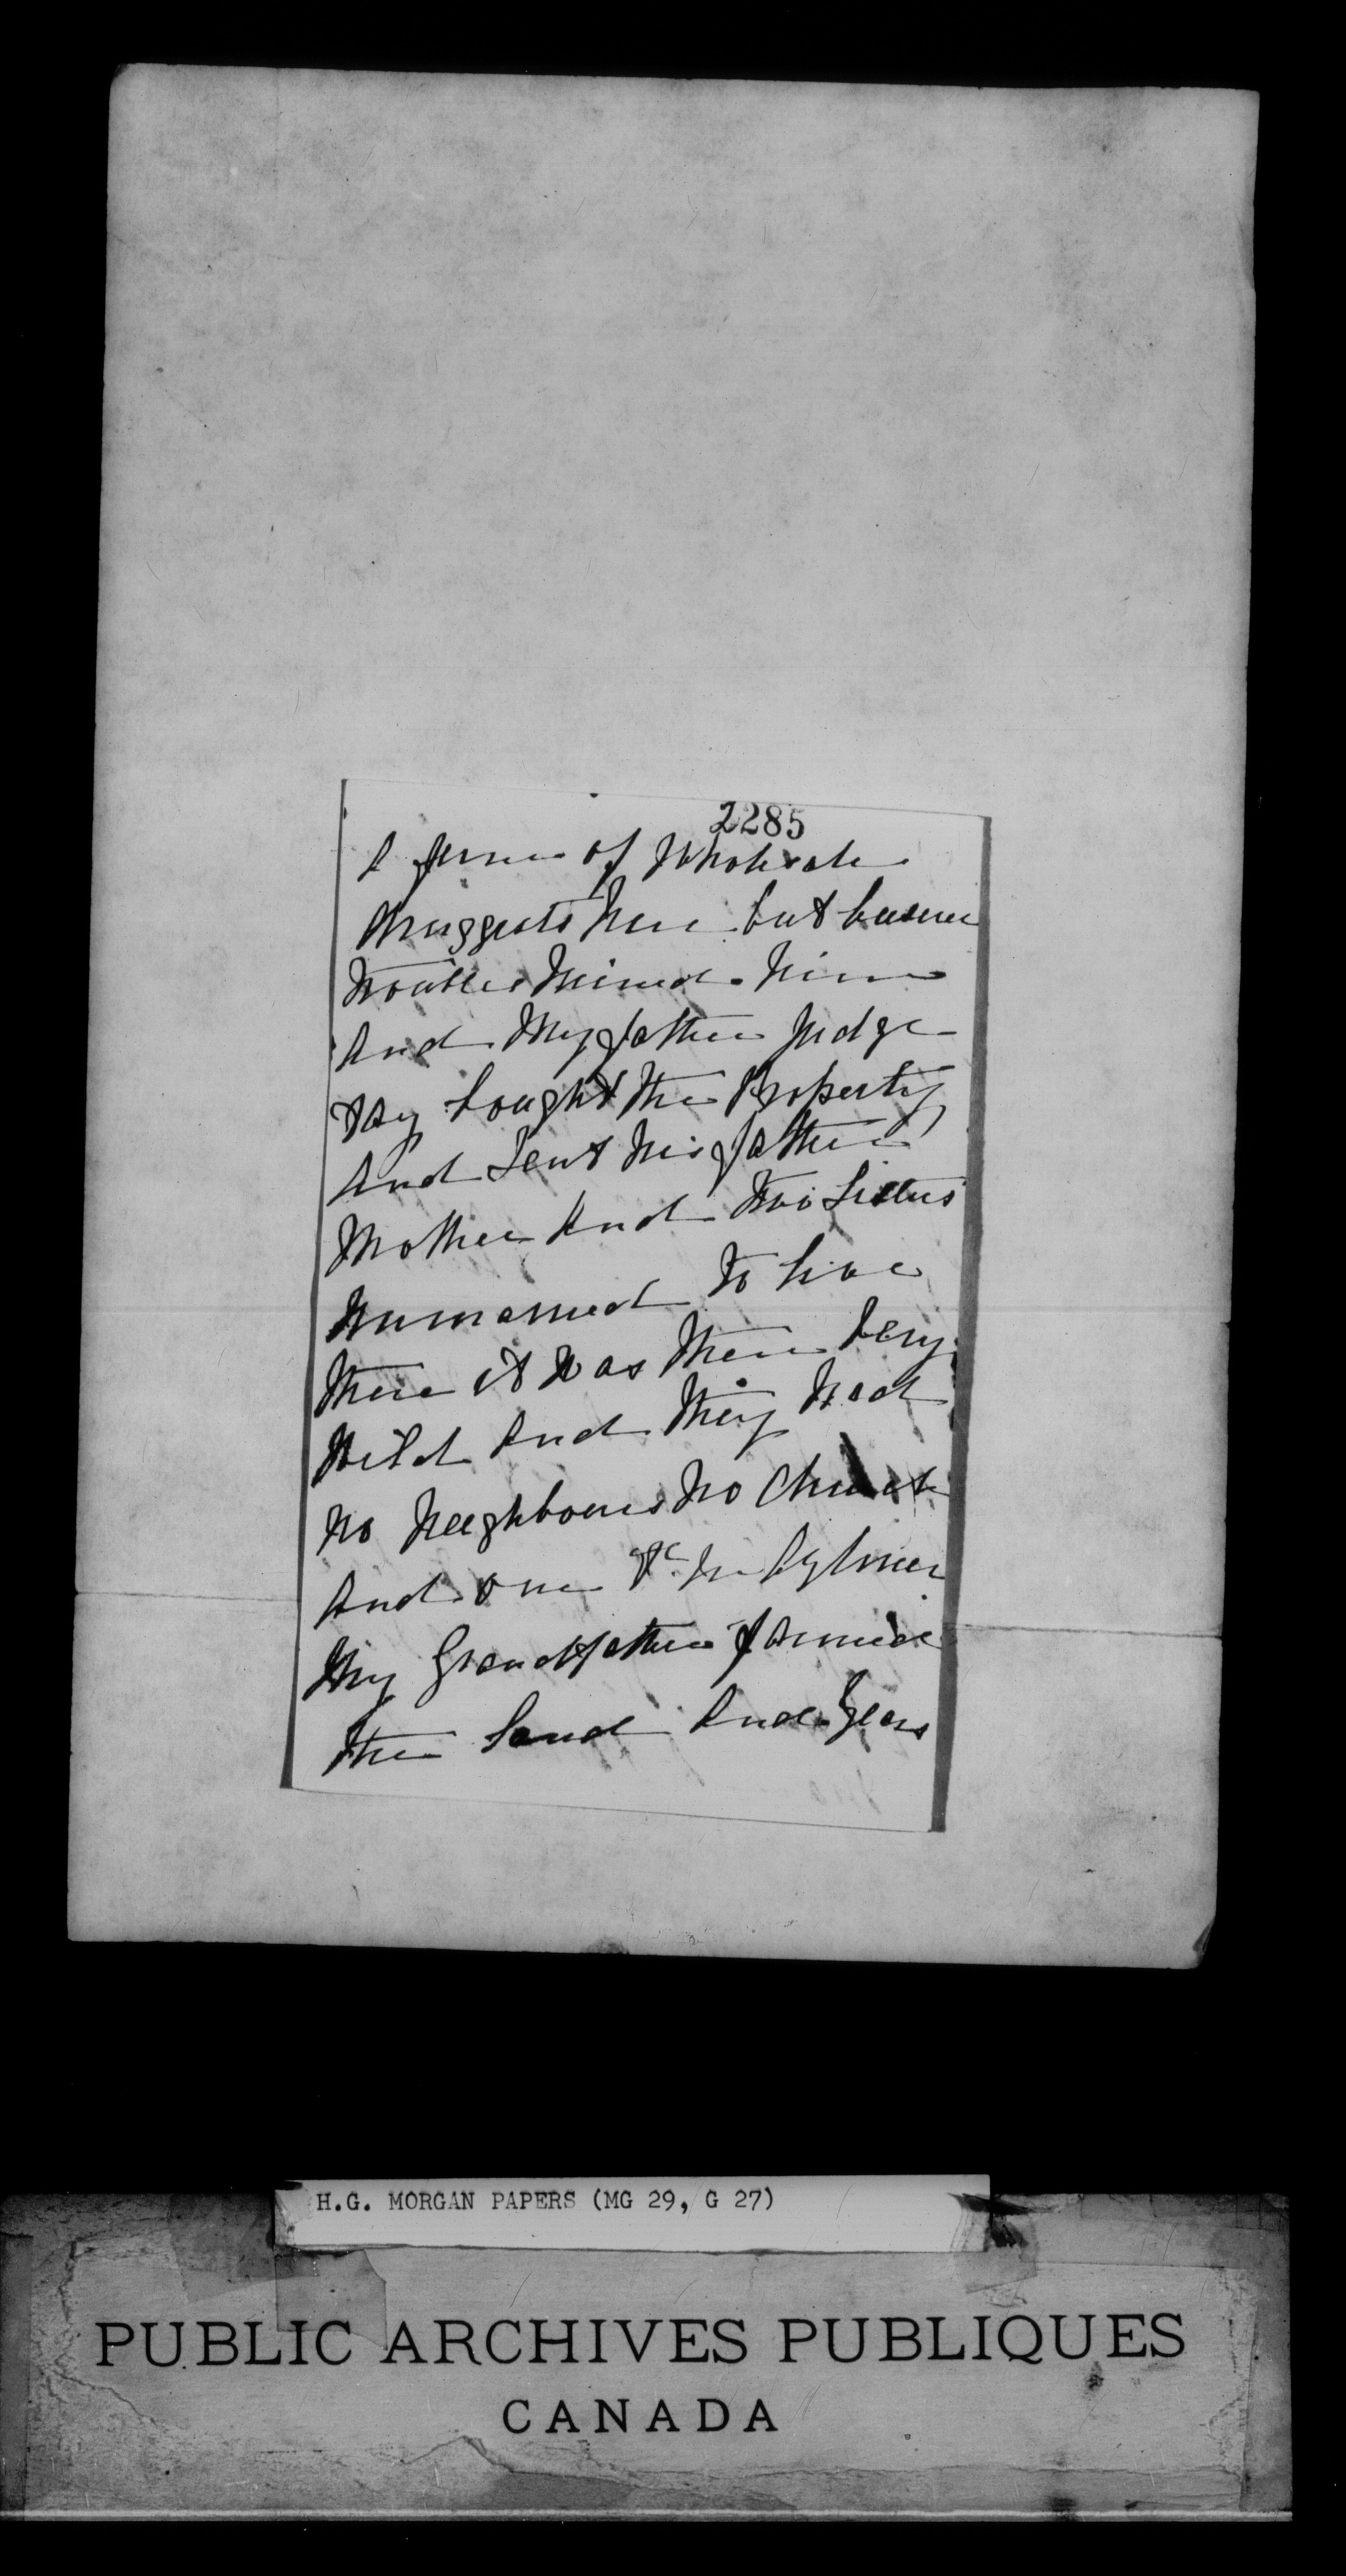 2285
A firm of Wholesale
Druggists here but business
Troubles Ruined him
And My father Judge
Day bought the Property
And Sent his father
Mother And Two Sisters
Unmarried To live
There it was then Very
Wild And they had
No Neighbours No Church
And one &c in Aylmer
My Grandfather farmed
the Land And Years
H.G. MORGAN PAPERS (MG 29, G 27)
PUBLIC ARCHIVES PUBLIQUES
CANADA